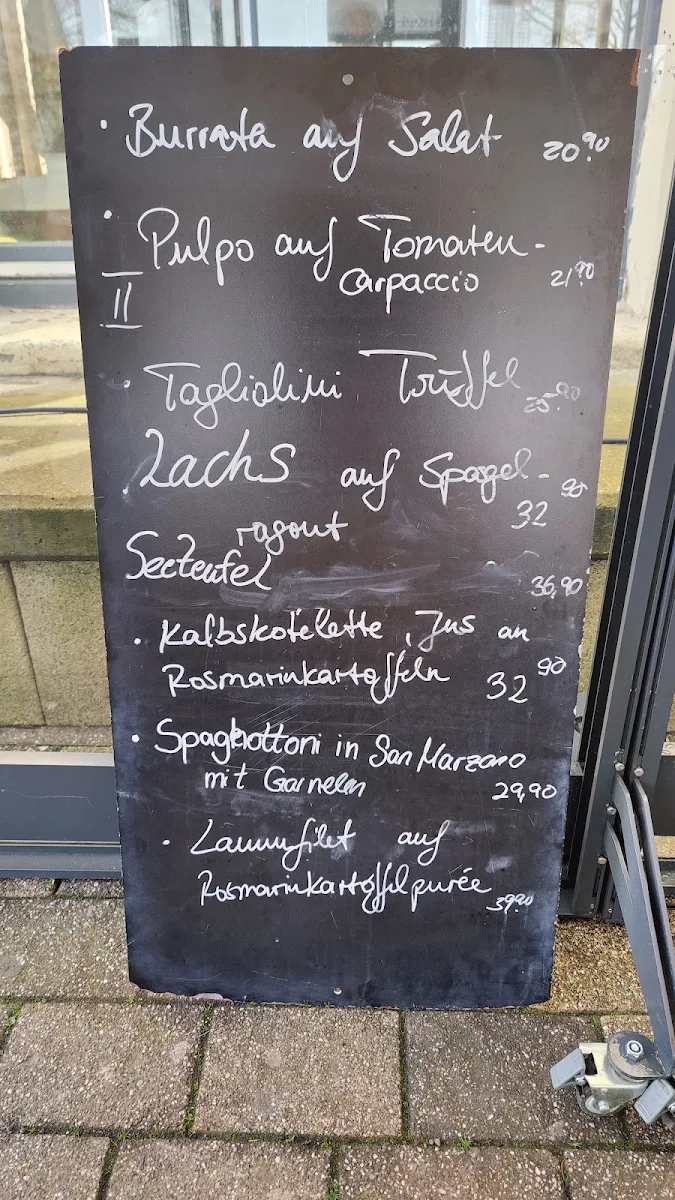 • Burrata auf Salat 20.90
• Pulpo auf Tomaten-
Carpaccio 21.90
II
• Tagliolini Trüffel 25.90
• Lachs auf Spargel-
ragout 32.90
Seeteufel 36,90
• Kalbskotelette, Jus an
Rosmarinkartoffeln 32.90
• Spaghottoni in San Marzano
mit Garnelen 29,90
• Lammfilet auf
Rosmarinkartoffelpurée 39.90